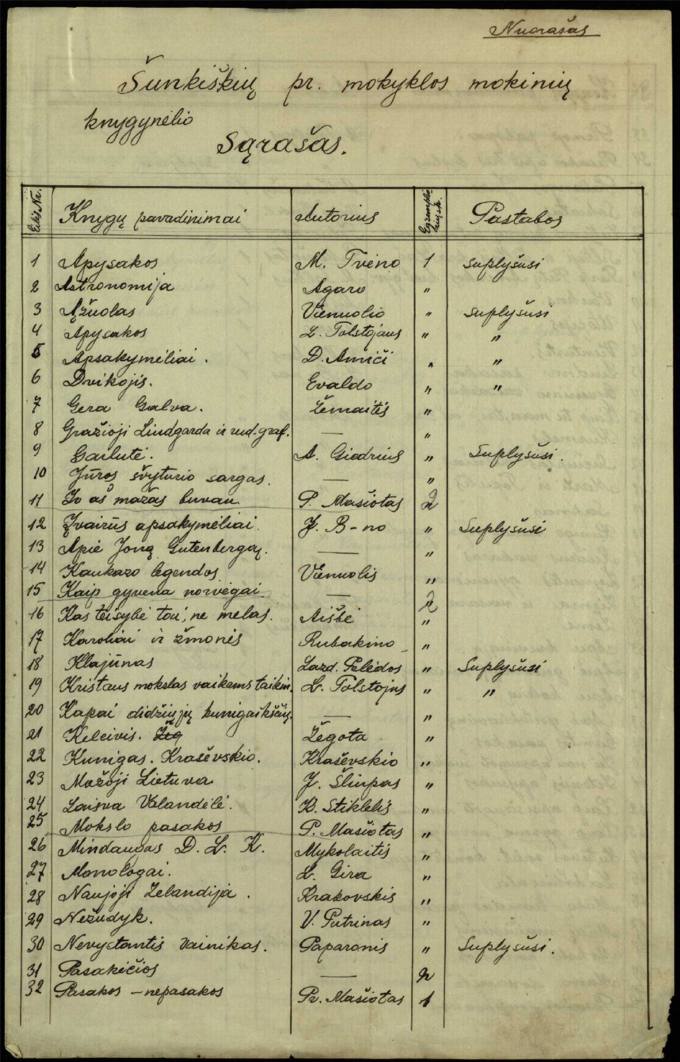 Nuorašas
Šunkiškių pr. mokyklos mokinių
knygynėlio
Sąrašas.
Eilės Nr. Knygų pavadinimai Autorius Egzempl. Pastabos
1 Apysakos M. Tveno 1 suplyšusi
2 Astronomija Agaro "
3 Ąžuolas Vienuolio " suplyšusi
4 Apysakos L. Tolstojaus " "
5 Apsakymėliai. D. Amiči " "
6 Dvikojis. Evaldo " "
7 Gera Galva. Žemaitis "
8 Gražioji Lindgarda ir rud. graf. — "
9 Gailutė. A. Giedrius " Suplyšusi.
10 Jūros švyturio sargas. — "
11 Ir aš mažas buvau P. Mašiotas 2
12 Įvairūs apsakymėliai. J. B-no " Suplyšusi
13 Apie Joną Gutenbergą. — "
14 Kaukazo legendos Vienuolis "
15 Kaip gyvena norvegai. 2
16 Kas teisybė tai, ne melas. Aišbė "
17 Karoliai ir žmonės Rubakino "
18 Klajūnas Lazd. Pelėdos " Suplyšusi
19 Kristaus mokslas vaikams taikin. L. Tolstojus " "
20 Kapai didžiųjų kunigaikščių — "
21 Keleivis. Žegota "
22 Kunigas. Kraševskio. Kraševskio "
23 Mažoji Lietuva J. Šliupas "
24 Laisva Valandėlė. K. Stiklelis "
25 Mokslo pasakos P. Mašiotas "
26 Mindaugas D. L. K. Mykolaitis "
27 Monologai. L. Gira "
28 Naujoji Zelandija. Krakovskis "
29 Nežudyk. V. Putrinas "
30 Nevystantis vainikas. Paparonis " Suplyšusi.
31 Pasakėčios — 2
32 Pasakos – nepasakos Pr. Mašiotas 1